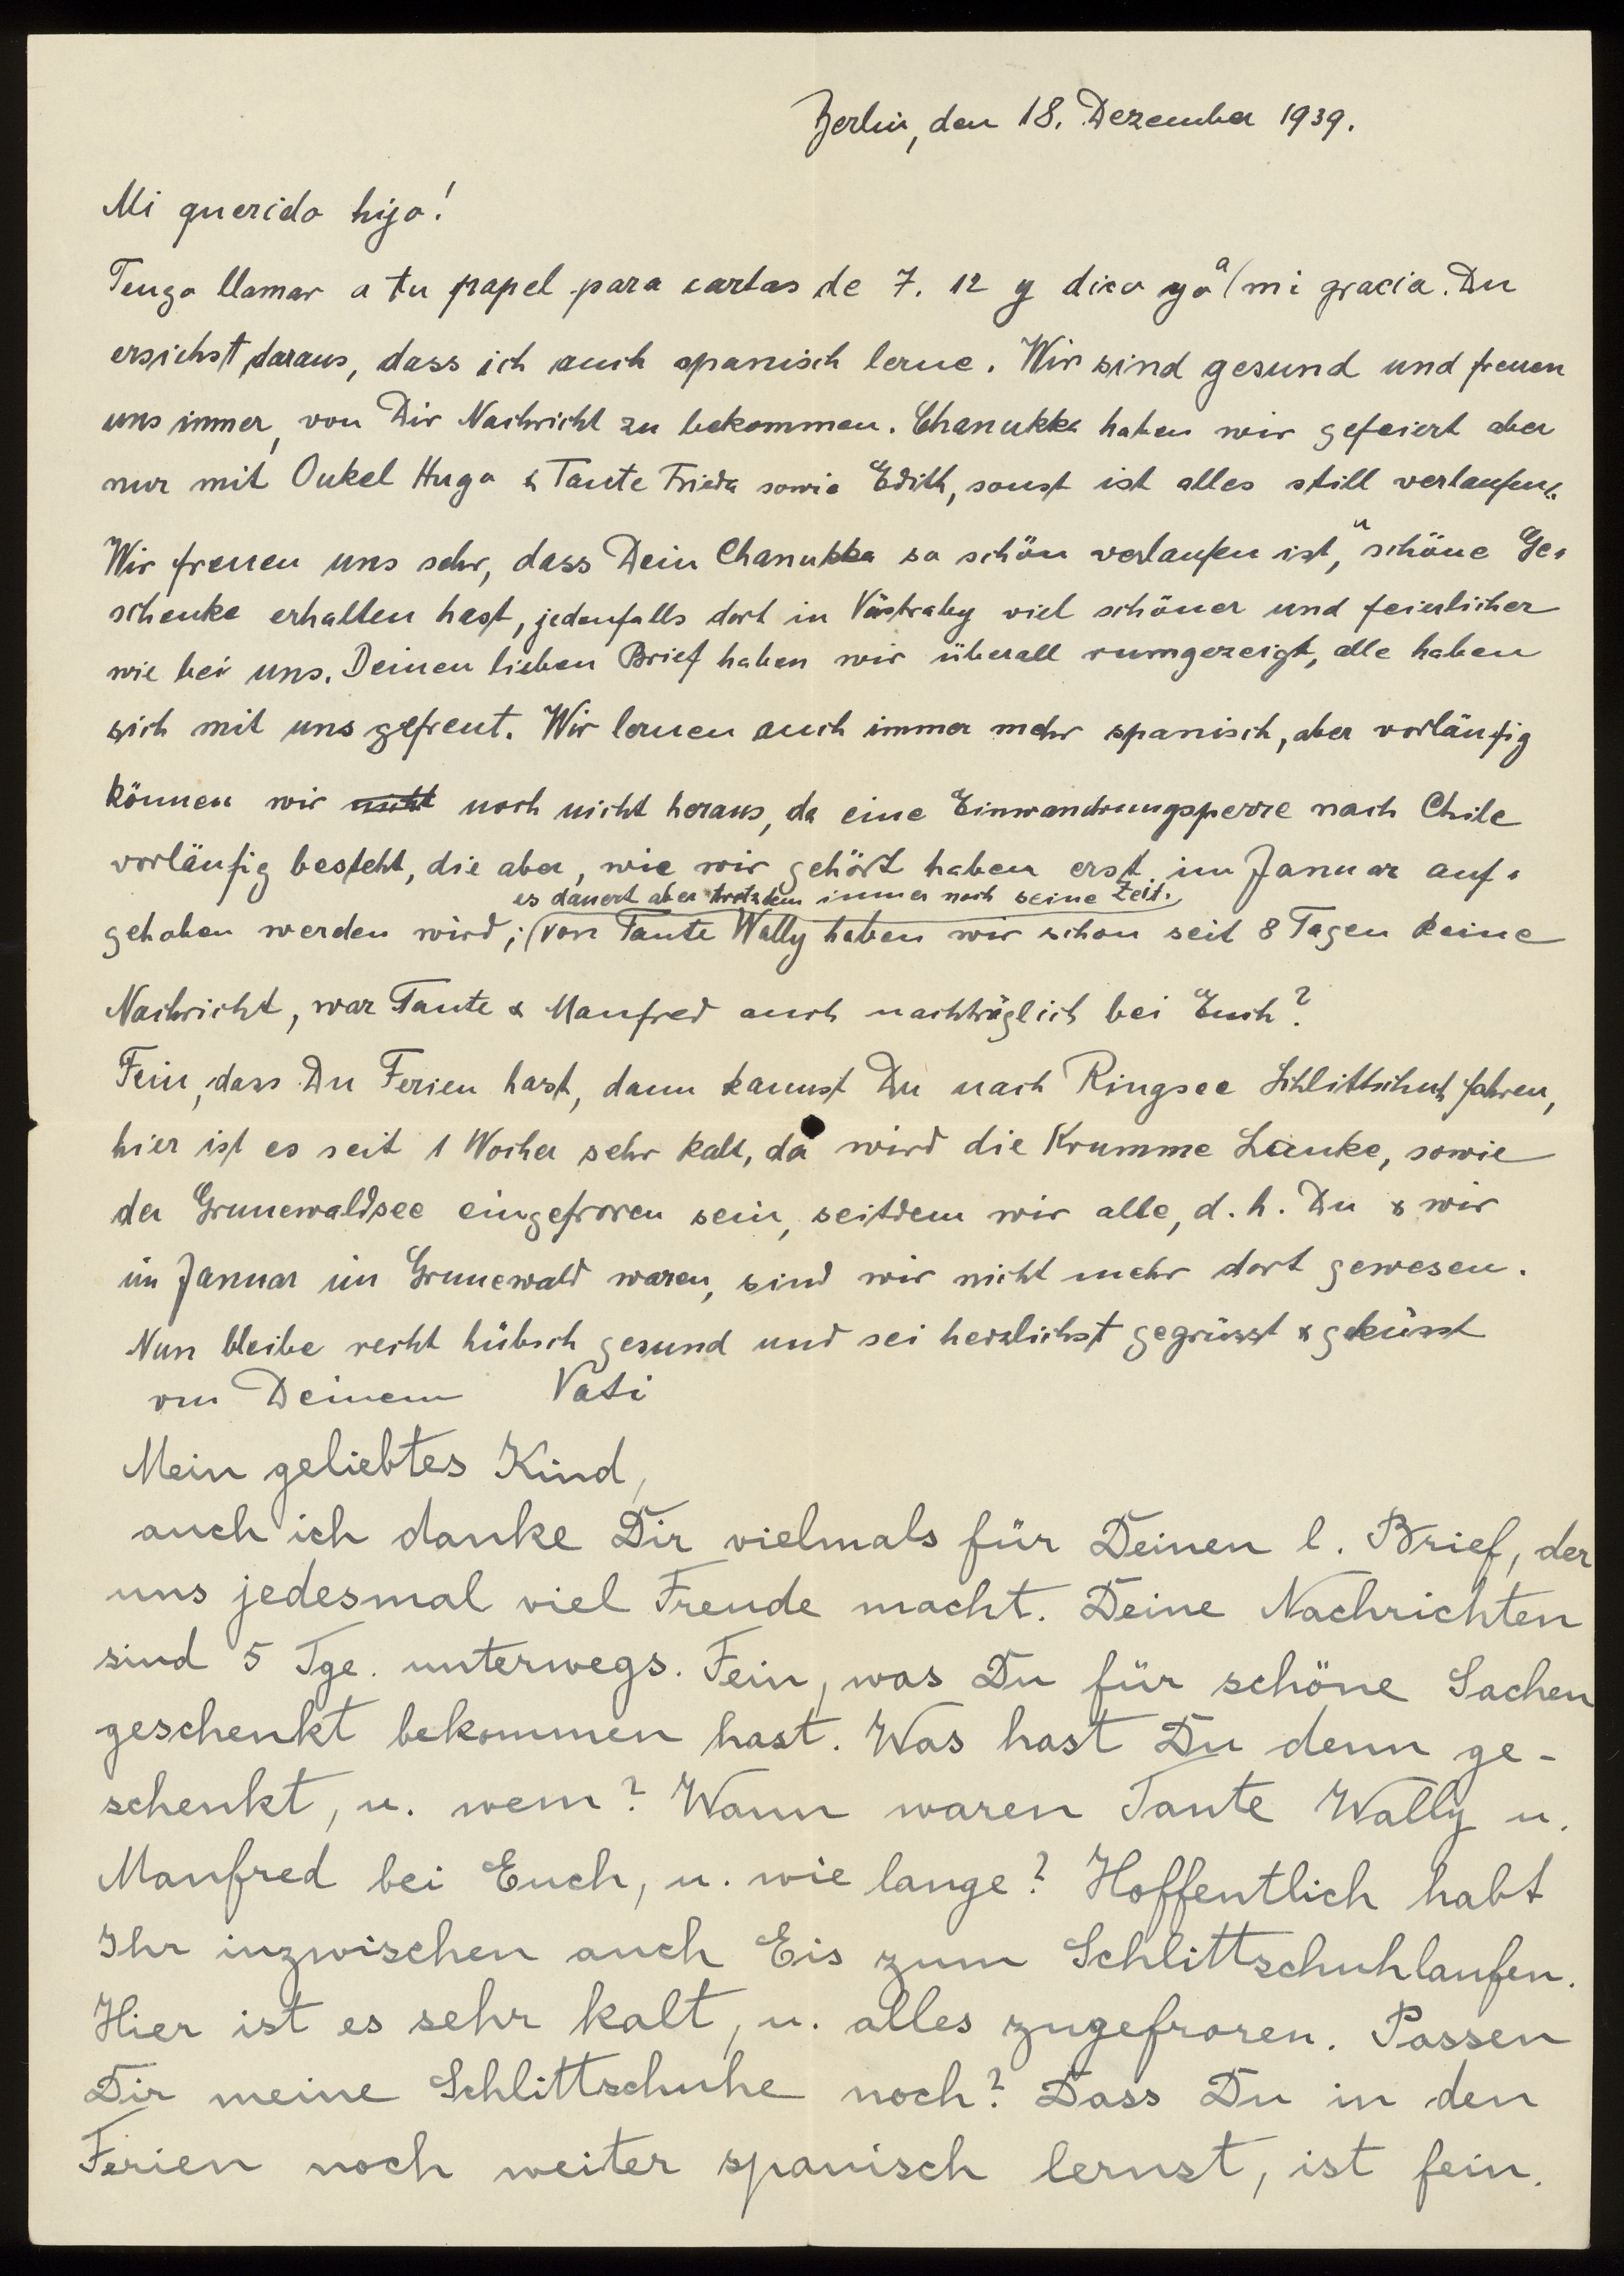 Berlin, den 18. Dezember 1939.
Mi querido hijo!
Tengo llamar a tu papel para cartas de 7. 12 y dico yo a (mi gracia. Du
ersichst daraus, dass ich auch spanisch lerne. Wir sind gesund und freuen
uns immer, von Dir Nachricht zu bekommen. Chanukka haben wir gefeiert aber
nur mit Onkel Hugo & Tante Frieda sowie Edith, sonst ist alles still verlaufen.
Wir freuen uns sehr, dass Dein Chanukka so schön verlaufen ist, u schöne Ge-
schenke erhalten hast, jedenfalls dort in Västraby viel schöner und feierlicher
wie bei uns. Deinen lieben Brief haben wir überall rumgezeigt, alle haben
sich mit uns gefreut. Wir lernen auch immer mehr spanisch, aber vorläufig
können wir nicht noch nicht heraus, da eine Einwandrungsperre nach Chile
vorläufig besteht, die aber, wie wir gehört haben erst im Januar auf-
es dauert aber trotzdem immer noch seine Zeit.
gehoben werden wird; (von Tante Wally haben wir schon seit 8 Tagen keine
Nachricht, war Tante & Manfred auch nachträglich bei Euch?
Fein, dass Du Ferien hast, dann kannst Du nach Ringsee Schlittschuh fahren,
hier ist es seit 1 Woche sehr kalt, da wird die Krumme Lanke, sowie
der Grunewaldsee eingefroren sein, seitdem wir alle, d. h. Du & wir
im Januar im Grunewald waren, sind wir nicht mehr dort gewesen.
Nun bleibe recht hübsch gesund und sei herzlichst gegrüsst & geküsst
von Deinem Vati
Mein geliebtes Kind,
auch ich danke Dir vielmals für Deinen l. Brief, der
uns jedesmal viel Freude macht. Deine Nachrichten
sind 5 Tge. unterwegs. Fein, was Du für schöne Sachen
geschenkt bekommen hast. Was hast Du denn ge-
schenkt, u. wem? Wann waren Tante Wally u.
Manfred bei Euch, u. wie lange? Hoffentlich habt
Ihr inzwischen auch Eis zum Schlittschuhlaufen.
Hier ist es sehr kalt, u. alles zugefroren. Passen
Dir meine Schlittschuhe noch? Dass Du in den
Ferien noch weiter spanisch lernst, ist fein.